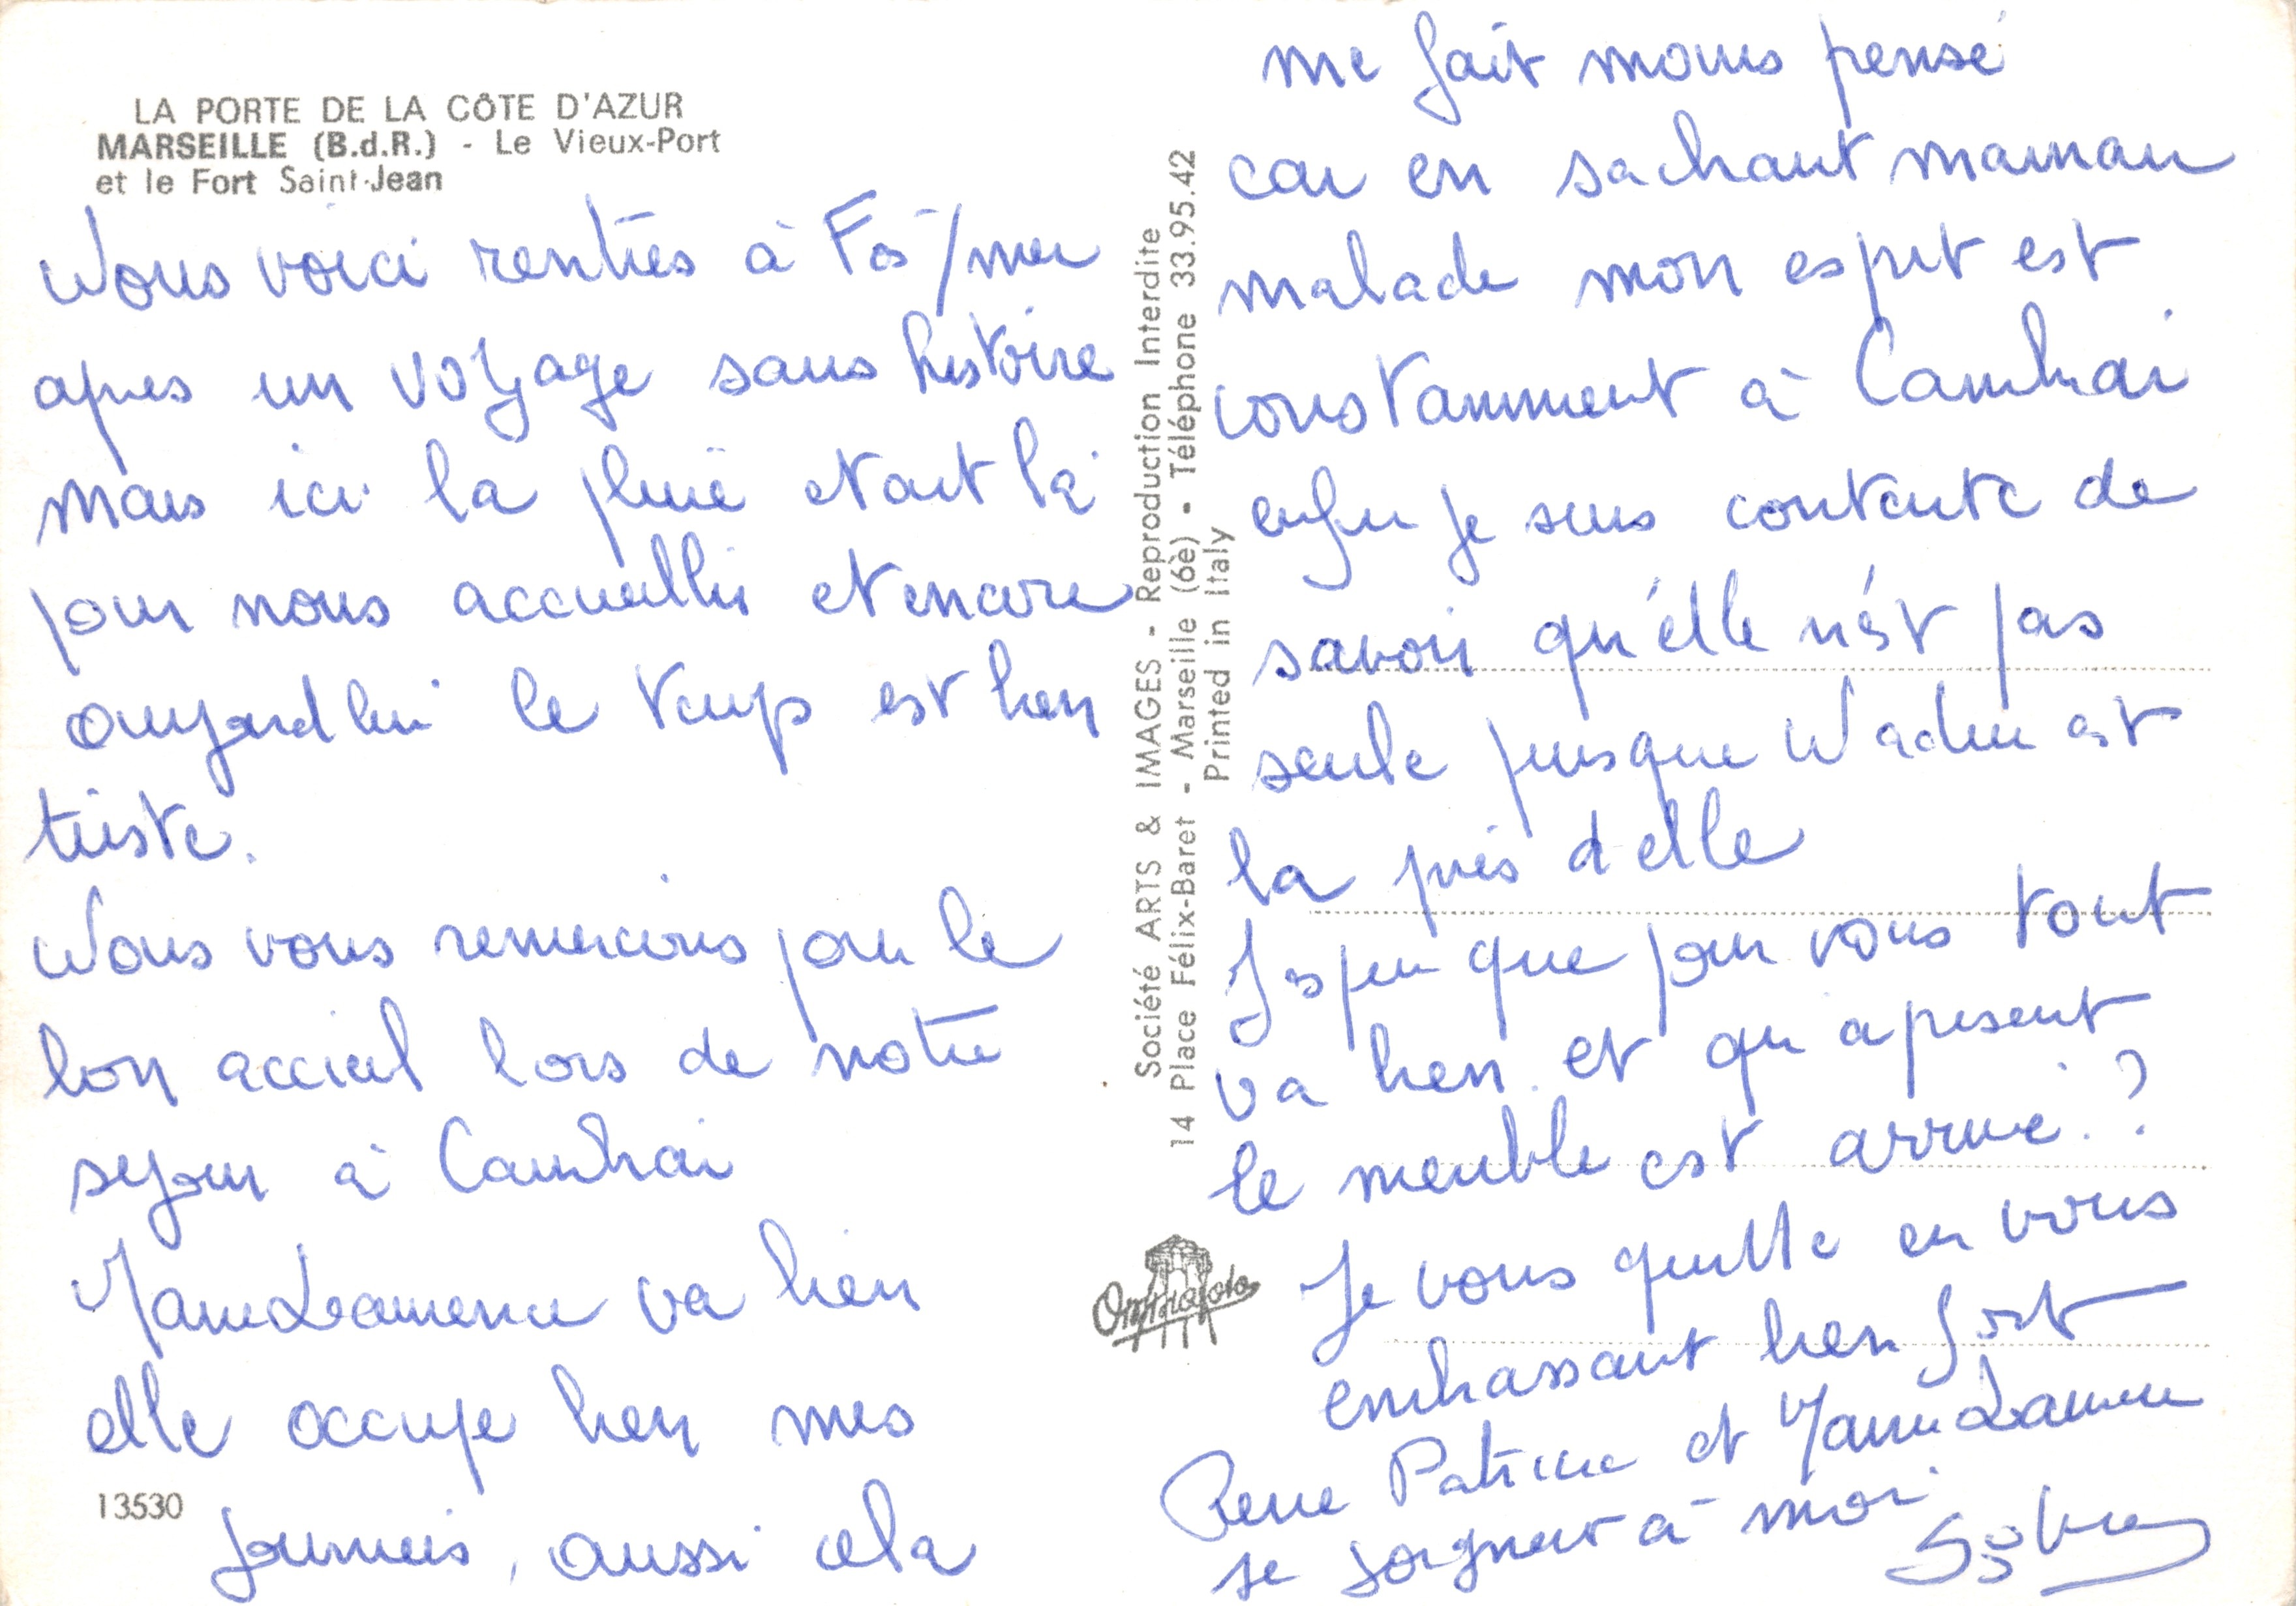 LA PORTE DE LA CÔTE D'AZUR
MARSEILLE (B.d.R.) - Le Vieux-Port
et le Fort Saint-Jean
Nous voici rentrés à Fos s/mer
apres un voyage sans histoire
mais ici la pluie etait là
pour nous accueillir et encore
aujourd hui le temps est bien
triste.
Nous vous remercions pour le
bon acceuil lors de notre
sejour à Cambrai
va bien
elle occupe bien mes
journeés, aussi cela
13530
Société ARTS & IMAGES - Reproduction Interdite
14 Place Félix-Baret - Marseille (6è) - Téléphone 33.95.42
Printed in Italy
me fait moins pensé
car en sachant maman
malade mon esprit est
constamment à Cambrai
enfin je suis contente de
savoir qu'elle n'est pas
seule puisque est
la près d elle
J espere que pour vous tout
va bien et qu a present
le meuble est arrivé. ?
Je vous quitte en vous
embrassant bien fort
Pierre Patrice et
se joignent à moi